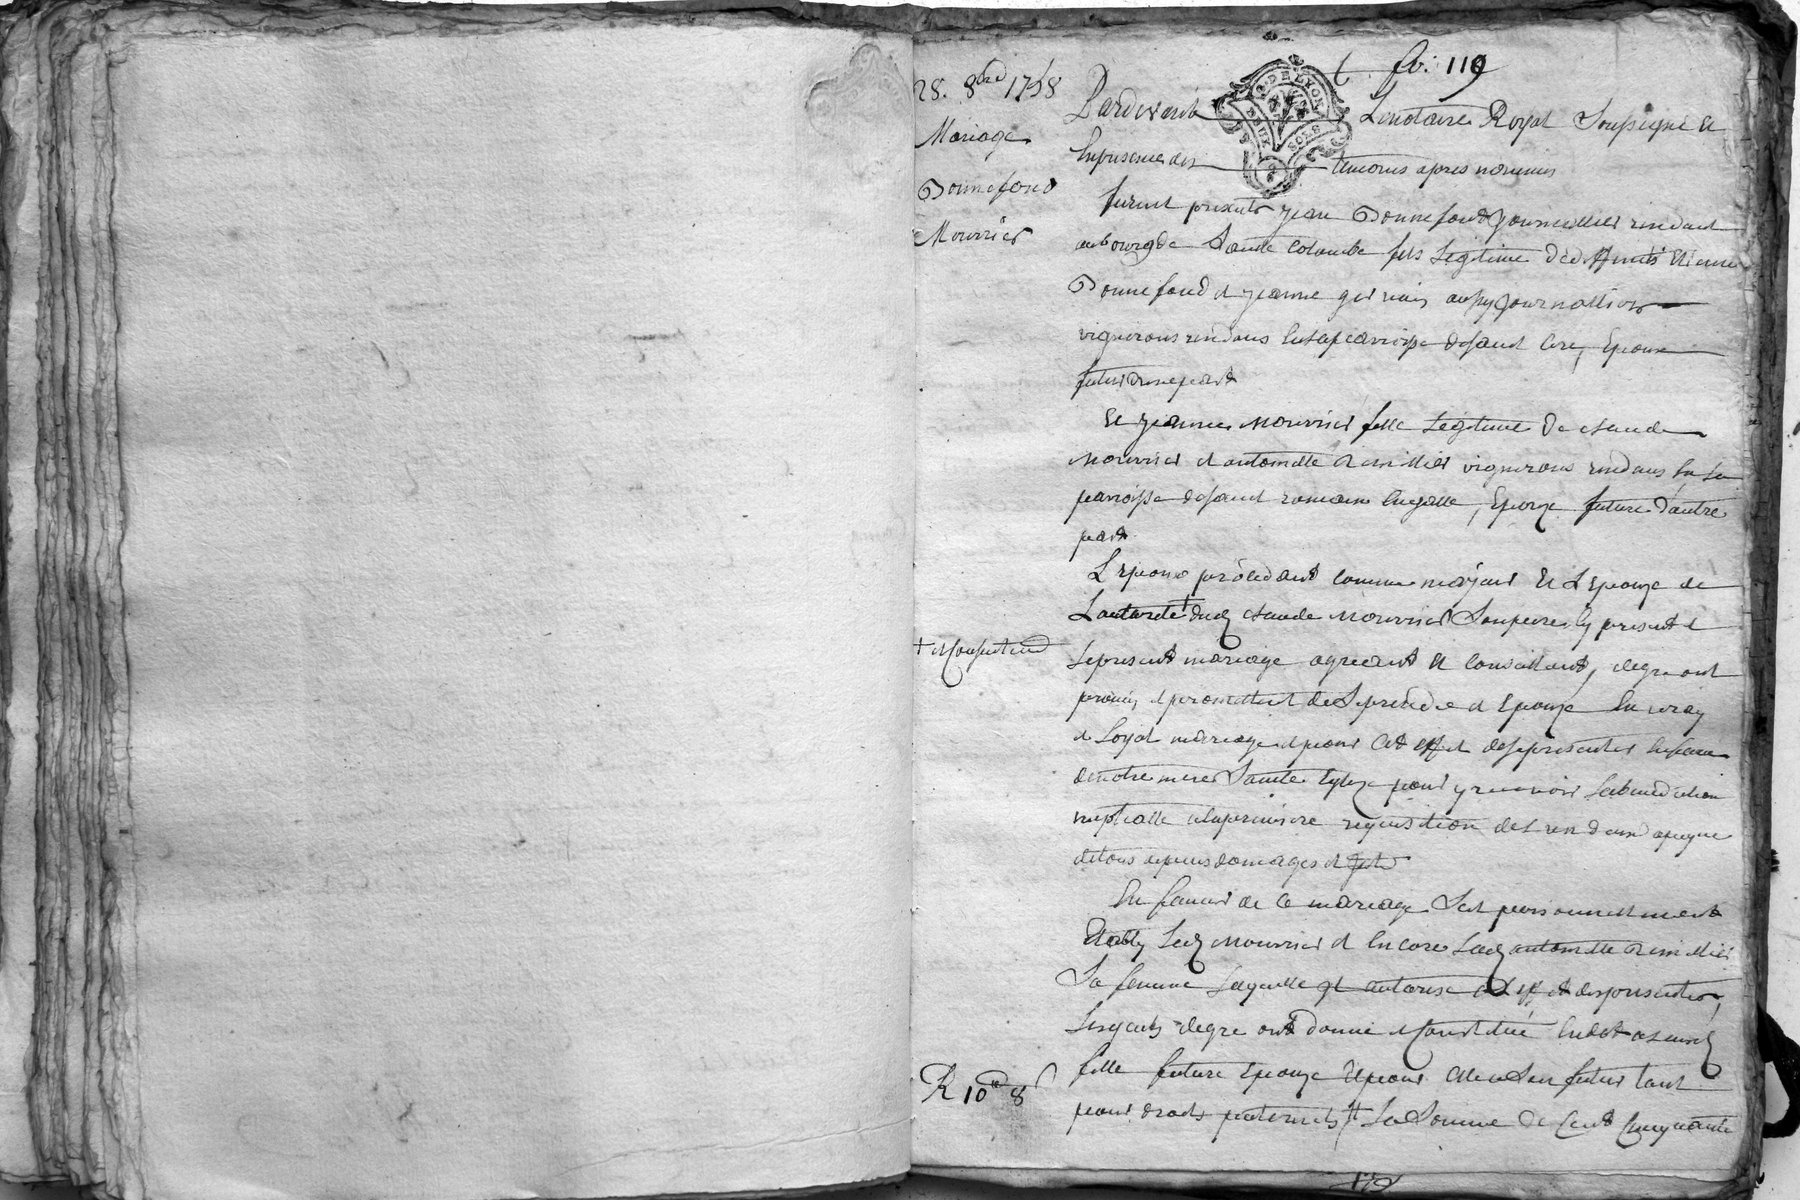 fo. 119
28. 8bre 1758
Mariage
Bonnefond
Mourrier
G. DE LYON
DEUX SOLS
Pardevant Le notaire Royal Soussigné et
En presence des temoins apres nommés
furent presents jean Bonnefond journallier residant
au bourg de Sainte Colombe fils Legitime de deffunts Etienne
Bonnefond et jeanne gervais aussy journalliers
vignerons residans en la parroisse de saint Cire, Epoux
futur d'une part
Et jeanne Mourrier fille Legitime de claude
Mourrier et antoinette vignerons residans en la
parroisse de saint romain en galle, Epouze future d'autre
part
L'Epoux procedant comme majeur Et L'Epouze de
L'autorité † dud claude Mourrier Son pere icy present et
† et Consentement
le present mariage agreant et Consentant, de gre ont
promis et promettent de Se prendre et Epouzer En vray
et Loyal mariage et pour Cet effet de se presenter En face
de notre mere Sainte Eglize pour y recevoir la benediction
nuptialle a la premiere requisition de L'un d'eux a peyne
de tous depens domages et
En faveur de Ce mariage S'est personnellement
Etably Led Mourrier et Encore Lad antoinette
Sa femme Laquelle il autorise a L'effet des presentes,
Lesquels de gre ont donné et Constitué En dot a leurd
fille future Epouze Et pour Elle a Son futur tant
pour droits paternels La Somme de Cent Cinquante
R 10 8